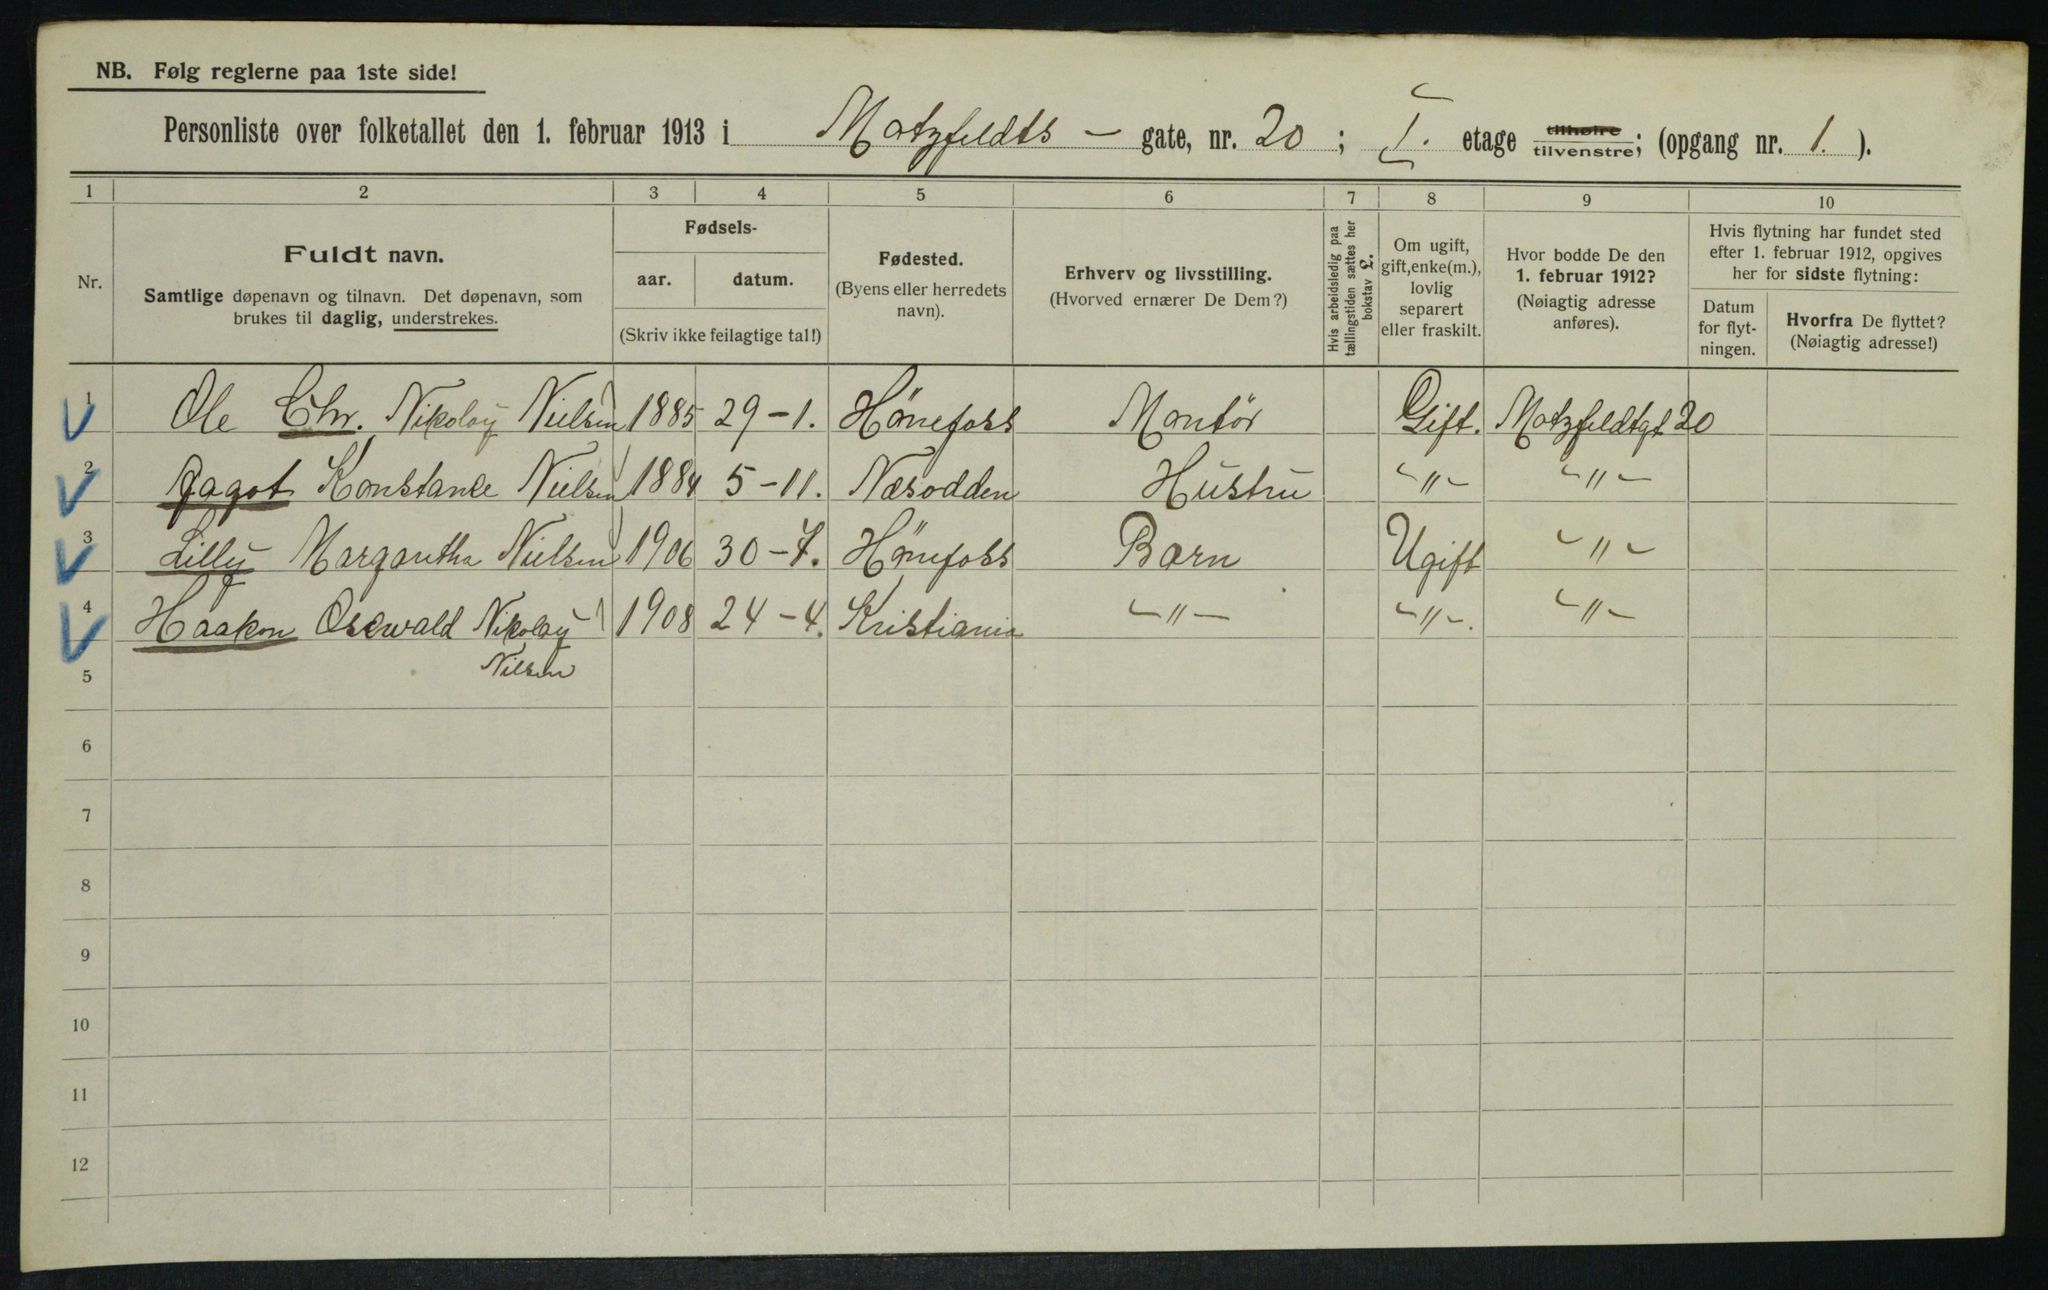 NB. Følg reglerne paa 1ste side!
Personliste over folketallet den 1. februar 1913 i Motzfeldts - gate, nr. 20; I. etage tilhøire tilvenstre; (opgang nr. 1.).
1 2 3 4 5 6 7 8 9 10
Nr.
Fuldt navn.
Samtlige døpenavn og tilnavn. Det døpenavn, som
brukes til daglig, understrekes.
Fødsels-
aar. datum.
(Skriv ikke feilagtige tal!)
Fødested.
(Byens eller herredets
navn).
Erhverv og livsstilling.
(Hvorved ernærer De Dem?)
Hvis arbeidsledig paa
tællingstiden sættes her
bokstav L.
Om ugift,
gift, enke(m.),
lovlig
separert
eller fraskilt.
Hvor bodde De den
1. februar 1912?
(Nøiagtig adresse
anføres).
Hvis flytning har fundet sted
efter 1. februar 1912, opgives
her for sidste flytning:
Datum
for flyt-
ningen.
Hvorfra De flyttet?
(Nøiagtig adresse!)
1 Ole Chr. Nikolay Nielsen 1885 29-1. Hønefoss Montør Gift. Motzfeldtgt 20
2 Konstanse Nielsen 1884 5-11. Næsodden Hustru -"- -"-
3 Lilly Margaretha Nielsen 1906 30-7. Hønefoss Barn Ugift -"-
4 Haakon Osewald Nikolay 1908 24-4. Kristiania -"- -"-. -"-
Nilsen
5
6
7
8
9
10
11
12